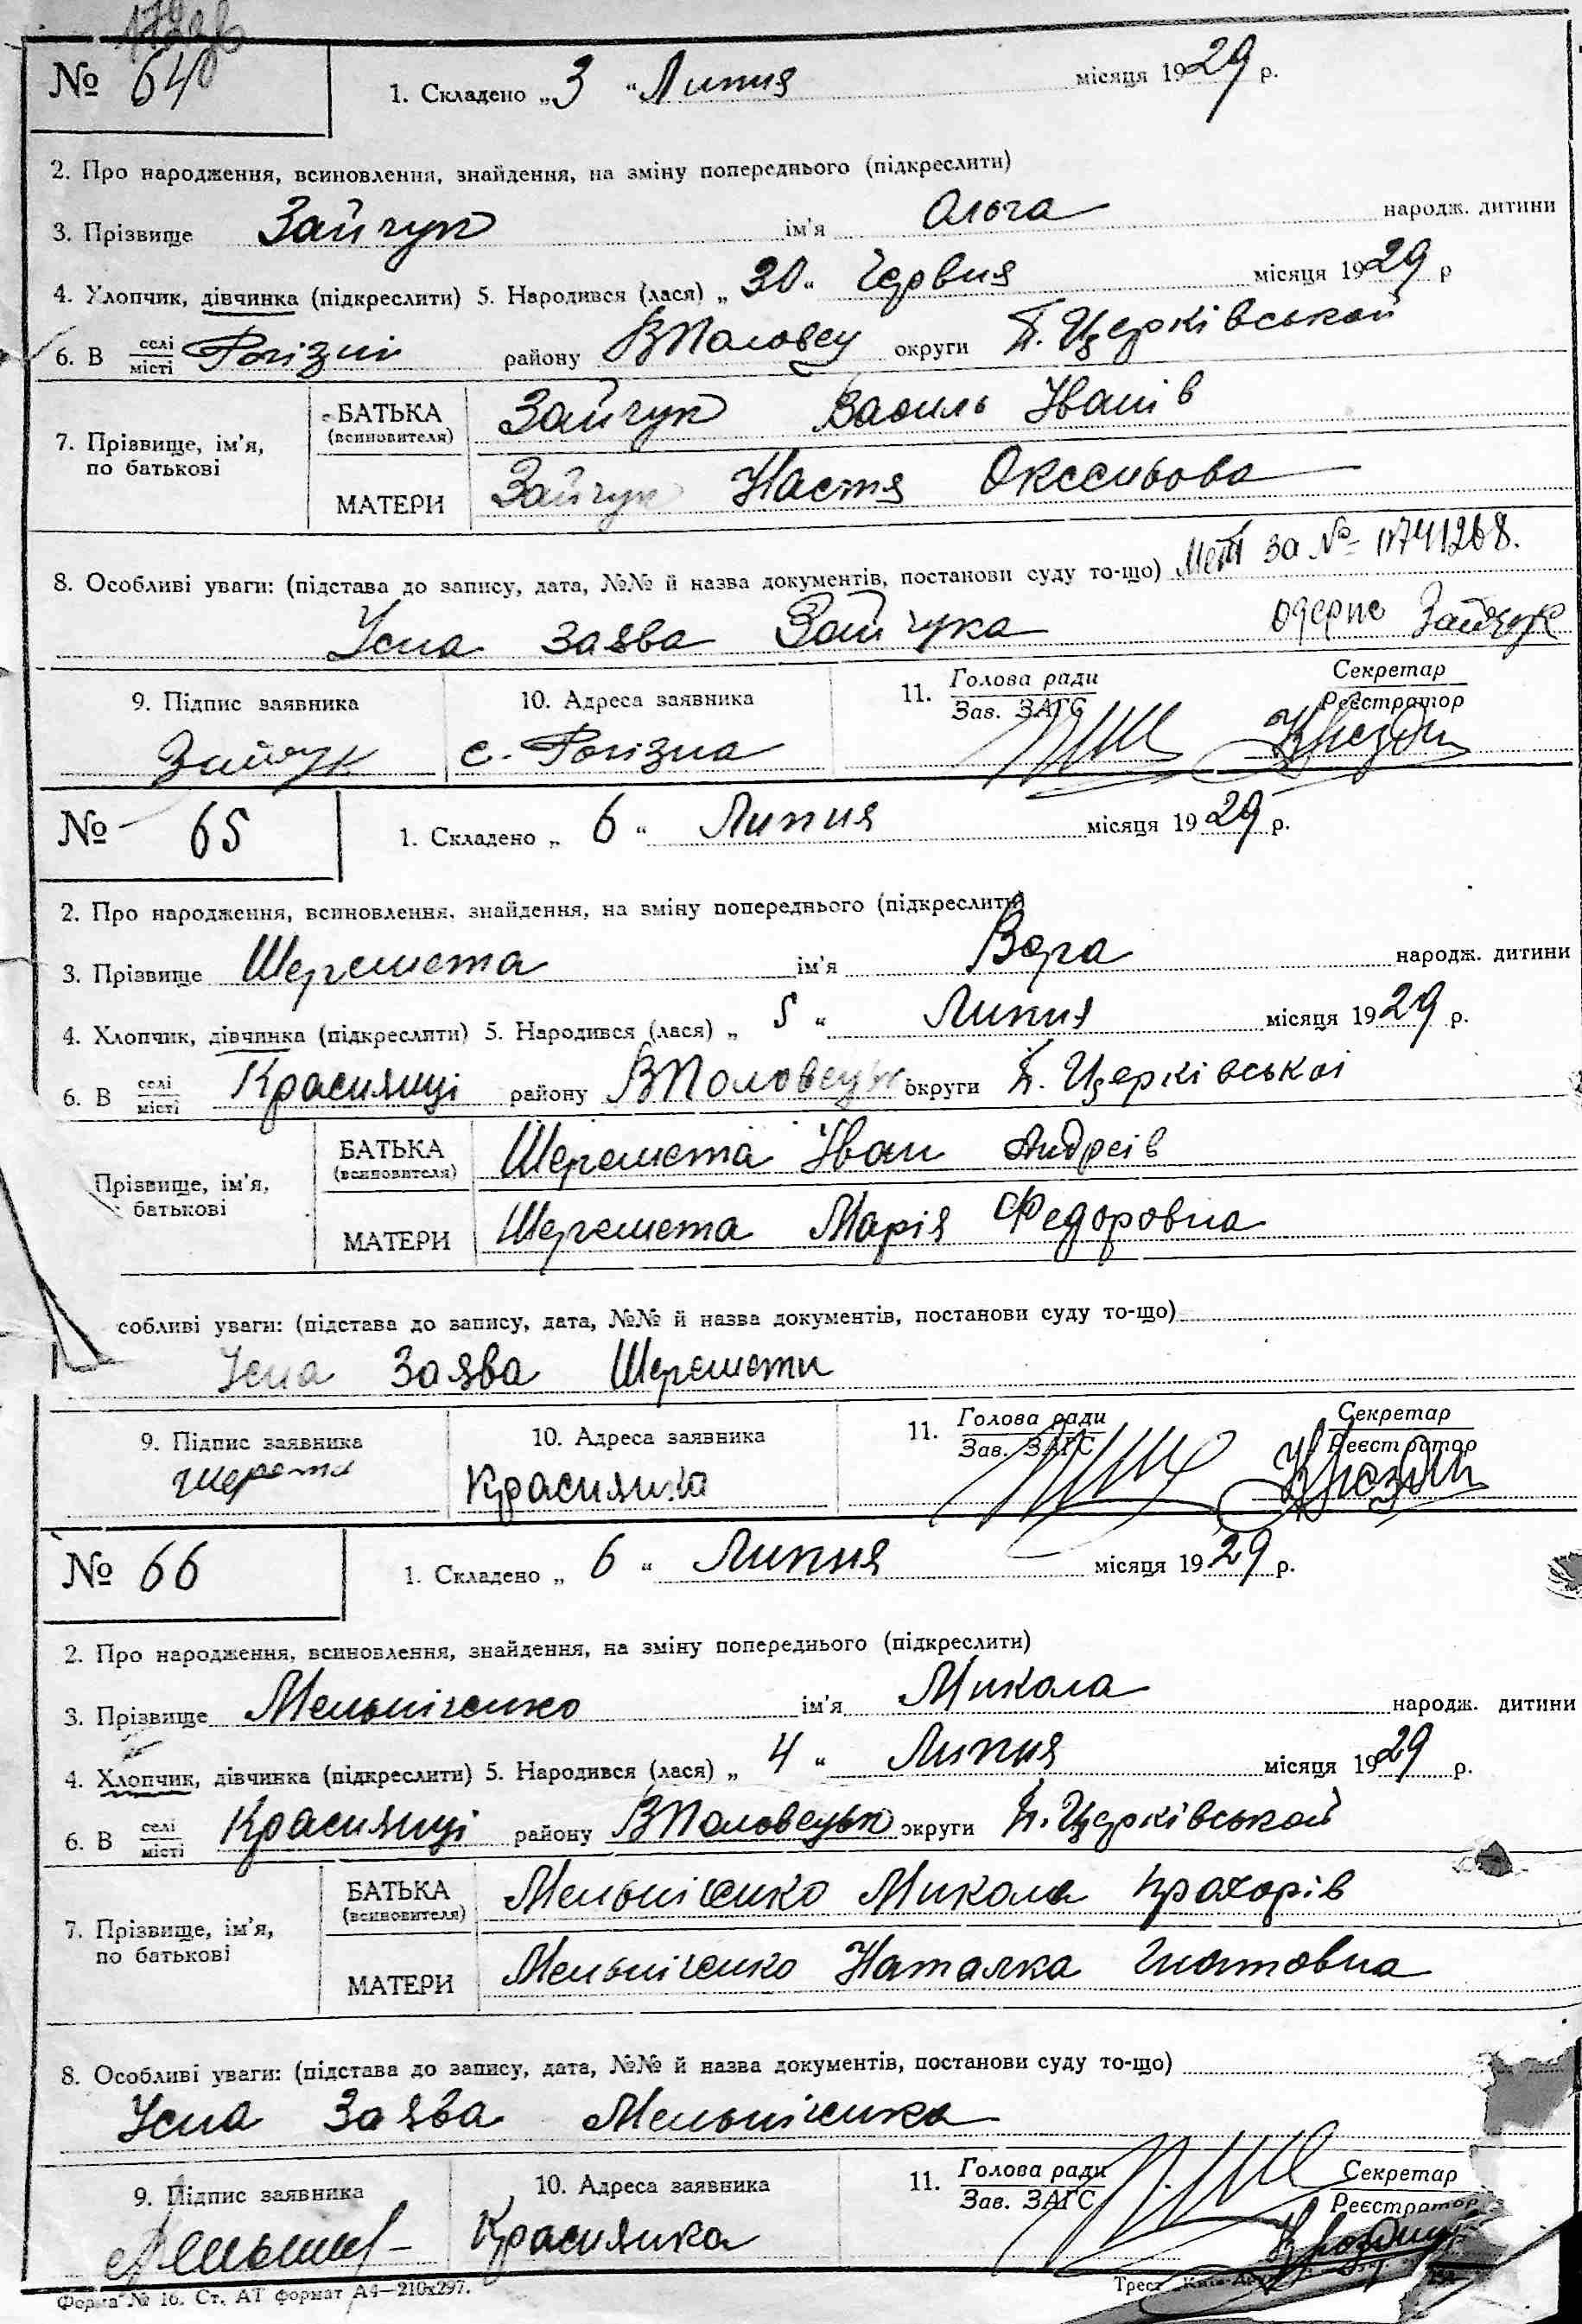 № 64
1. Складено „ 3 " Липня місяця 1929 р.
2. Про народження, всиновлення, знайдення, на зміну попереднього (підкреслити)
3. Прізвище Зайчук ім'я Ольга народж. дитини
4. Хлопчик, дівчинка (підкреслити) 5. Народився (лася) „ 30 " Червня місяця 1929 р
6. В селі місті Рогізні району ВПоловец округи Б. Церківської
7. Прізвище, ім'я, по батькові
БАТЬКА (всиновителя) Зайчук Василь Іванів
МАТЕРИ Зайчук Настя Оксеньова
8. Особливі уваги: (підстава до запису, дата, №№ й назва документів, постанови суду то-що) за № 0741268.
Усна заява Зайчука одерже Зайчук
9. Підпис заявника 10. Адреса заявника 11. Голова ради Зав. ЗАГС Секретар Реєстратор
Зайчук с. Рогізна
№ 65
1. Складено „ 6 " Липня місяця 1929 р.
2. Про народження, всиновлення, знайдення, на зміну попереднього (підкреслити)
3. Прізвище Шеремета ім'я Вера народж. дитини
4. Хлопчик, дівчинка (підкреслити) 5. Народився (лася) „ 5 " Липня місяця 1929 р.
6. В селі місті Красилиці району ВПоловецьк округи Б. Церківської
Прізвище, ім'я, батькові
БАТЬКА (всиновителя) Шеремета Іван Андреів
МАТЕРИ Шеремета Марія Федоровна
собливі уваги: (підстава до запису, дата, №№ й назва документів, постанови суду то-що)
Усна Заява Шеремети
9. Підпис заявника 10. Адреса заявника 11. Голова ради Зав. ЗАГС Секретар Реєстратор
№ 66
1. Складено „ 6 " Липня місяця 1929 р.
2. Про народження, всиновлення, знайдення, на зміну попереднього (підкреслити)
3. Прізвище Мельніченко ім'я Микола народж. дитини
4. Хлопчик, дівчинка (підкреслити) 5. Народився (лася) „ 4 " Липня місяця 1929 р.
6. В селі місті Красилиці району ВПоловецьк округи Б. Церківської
7. Прізвище, ім'я, по батькові
БАТЬКА (всиновителя) Мельніченко Микола Прохорів
МАТЕРИ Мельніченко Наталка Гнатовна
8. Особливі уваги: (підстава до запису, дата, №№ й назва документів, постанови суду то-що)
Усна Заява Мельніченка
9. Підпис заявника 10. Адреса заявника 11. Голова ради Зав. ЗАГС Секретар Реєстратор
Форма № 16. Ст. АТ формат А4—210x297. Трест